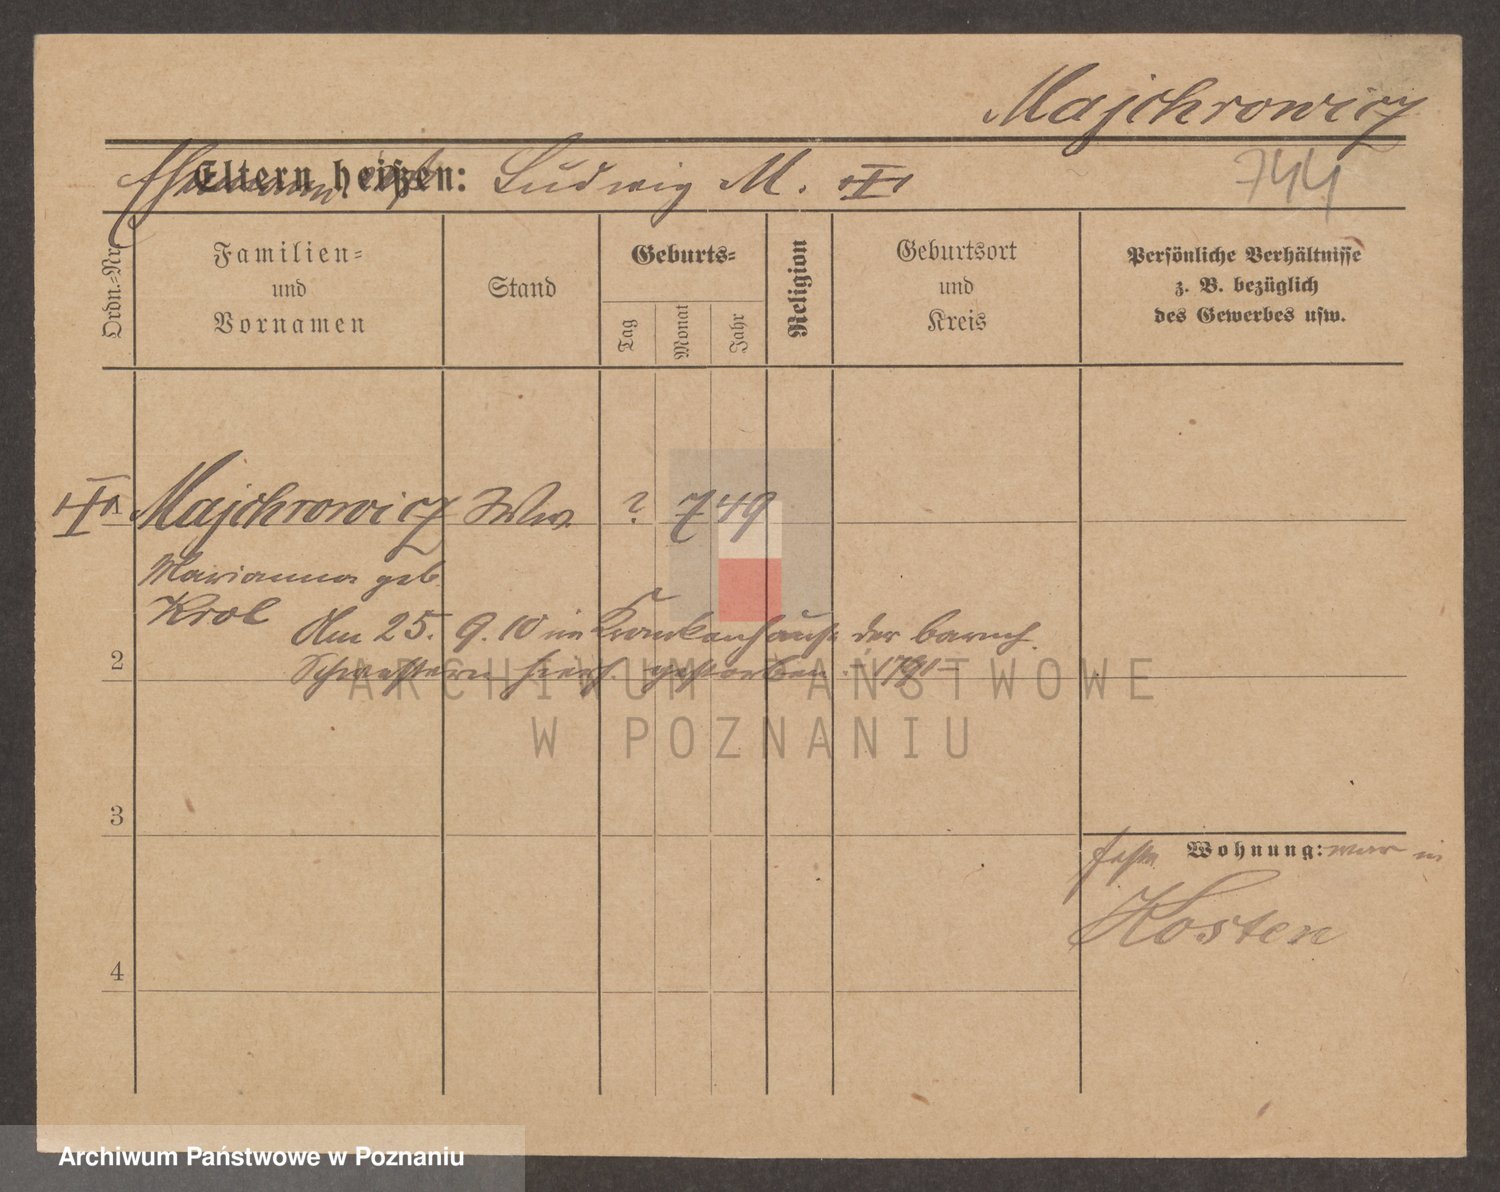 Majchrowicz
Eltern heißen: Ludwig M.
744
Ordn.-Nr.
Familien-
und
Vornamen
Stand
Geburts-
Tag
Monat
Jahr
Religion
Geburtsort
und
Kreis
Persönliche Verhältnisse
z. B. bezüglich
des Gewerbes usw.
1 Majchrowicz Ww. ? 7 49
Marianna geb.
Krol
Am 25. 9. 10 im Krankenhause der barmh.
2
Schwestern hiers. gestorben.
ARCHIWUM PAŃSTWOWE
W POZNANIU
3
Wohnung: war in
Kosten
4
Archiwum Państwowe w Poznaniu